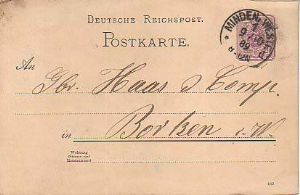 DEUTSCHE REICHSPOST.
POSTKARTE.
MINDEN
An
Gbr. Haas & Comp.
in Borken i. W.
Wohnung